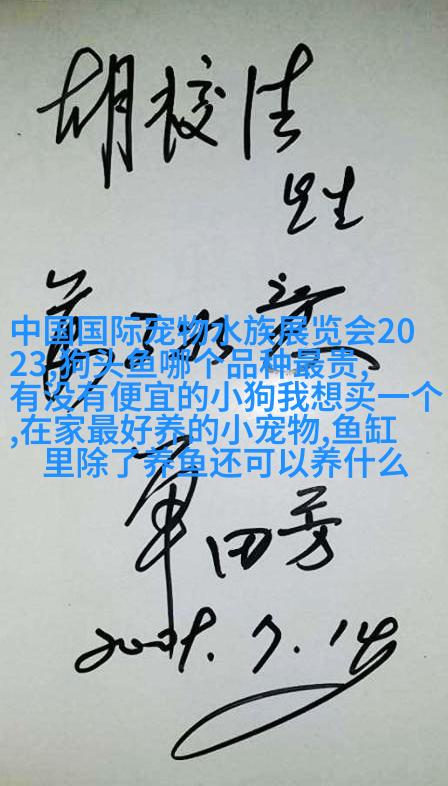 先生
中国国际宠物水族展览会20
23,狗头鱼哪个品种最贵,
有没有便宜的小狗我想买一个
,在家最好养的小宠物,鱼缸
里除了养鱼还可以养什么
单田芳